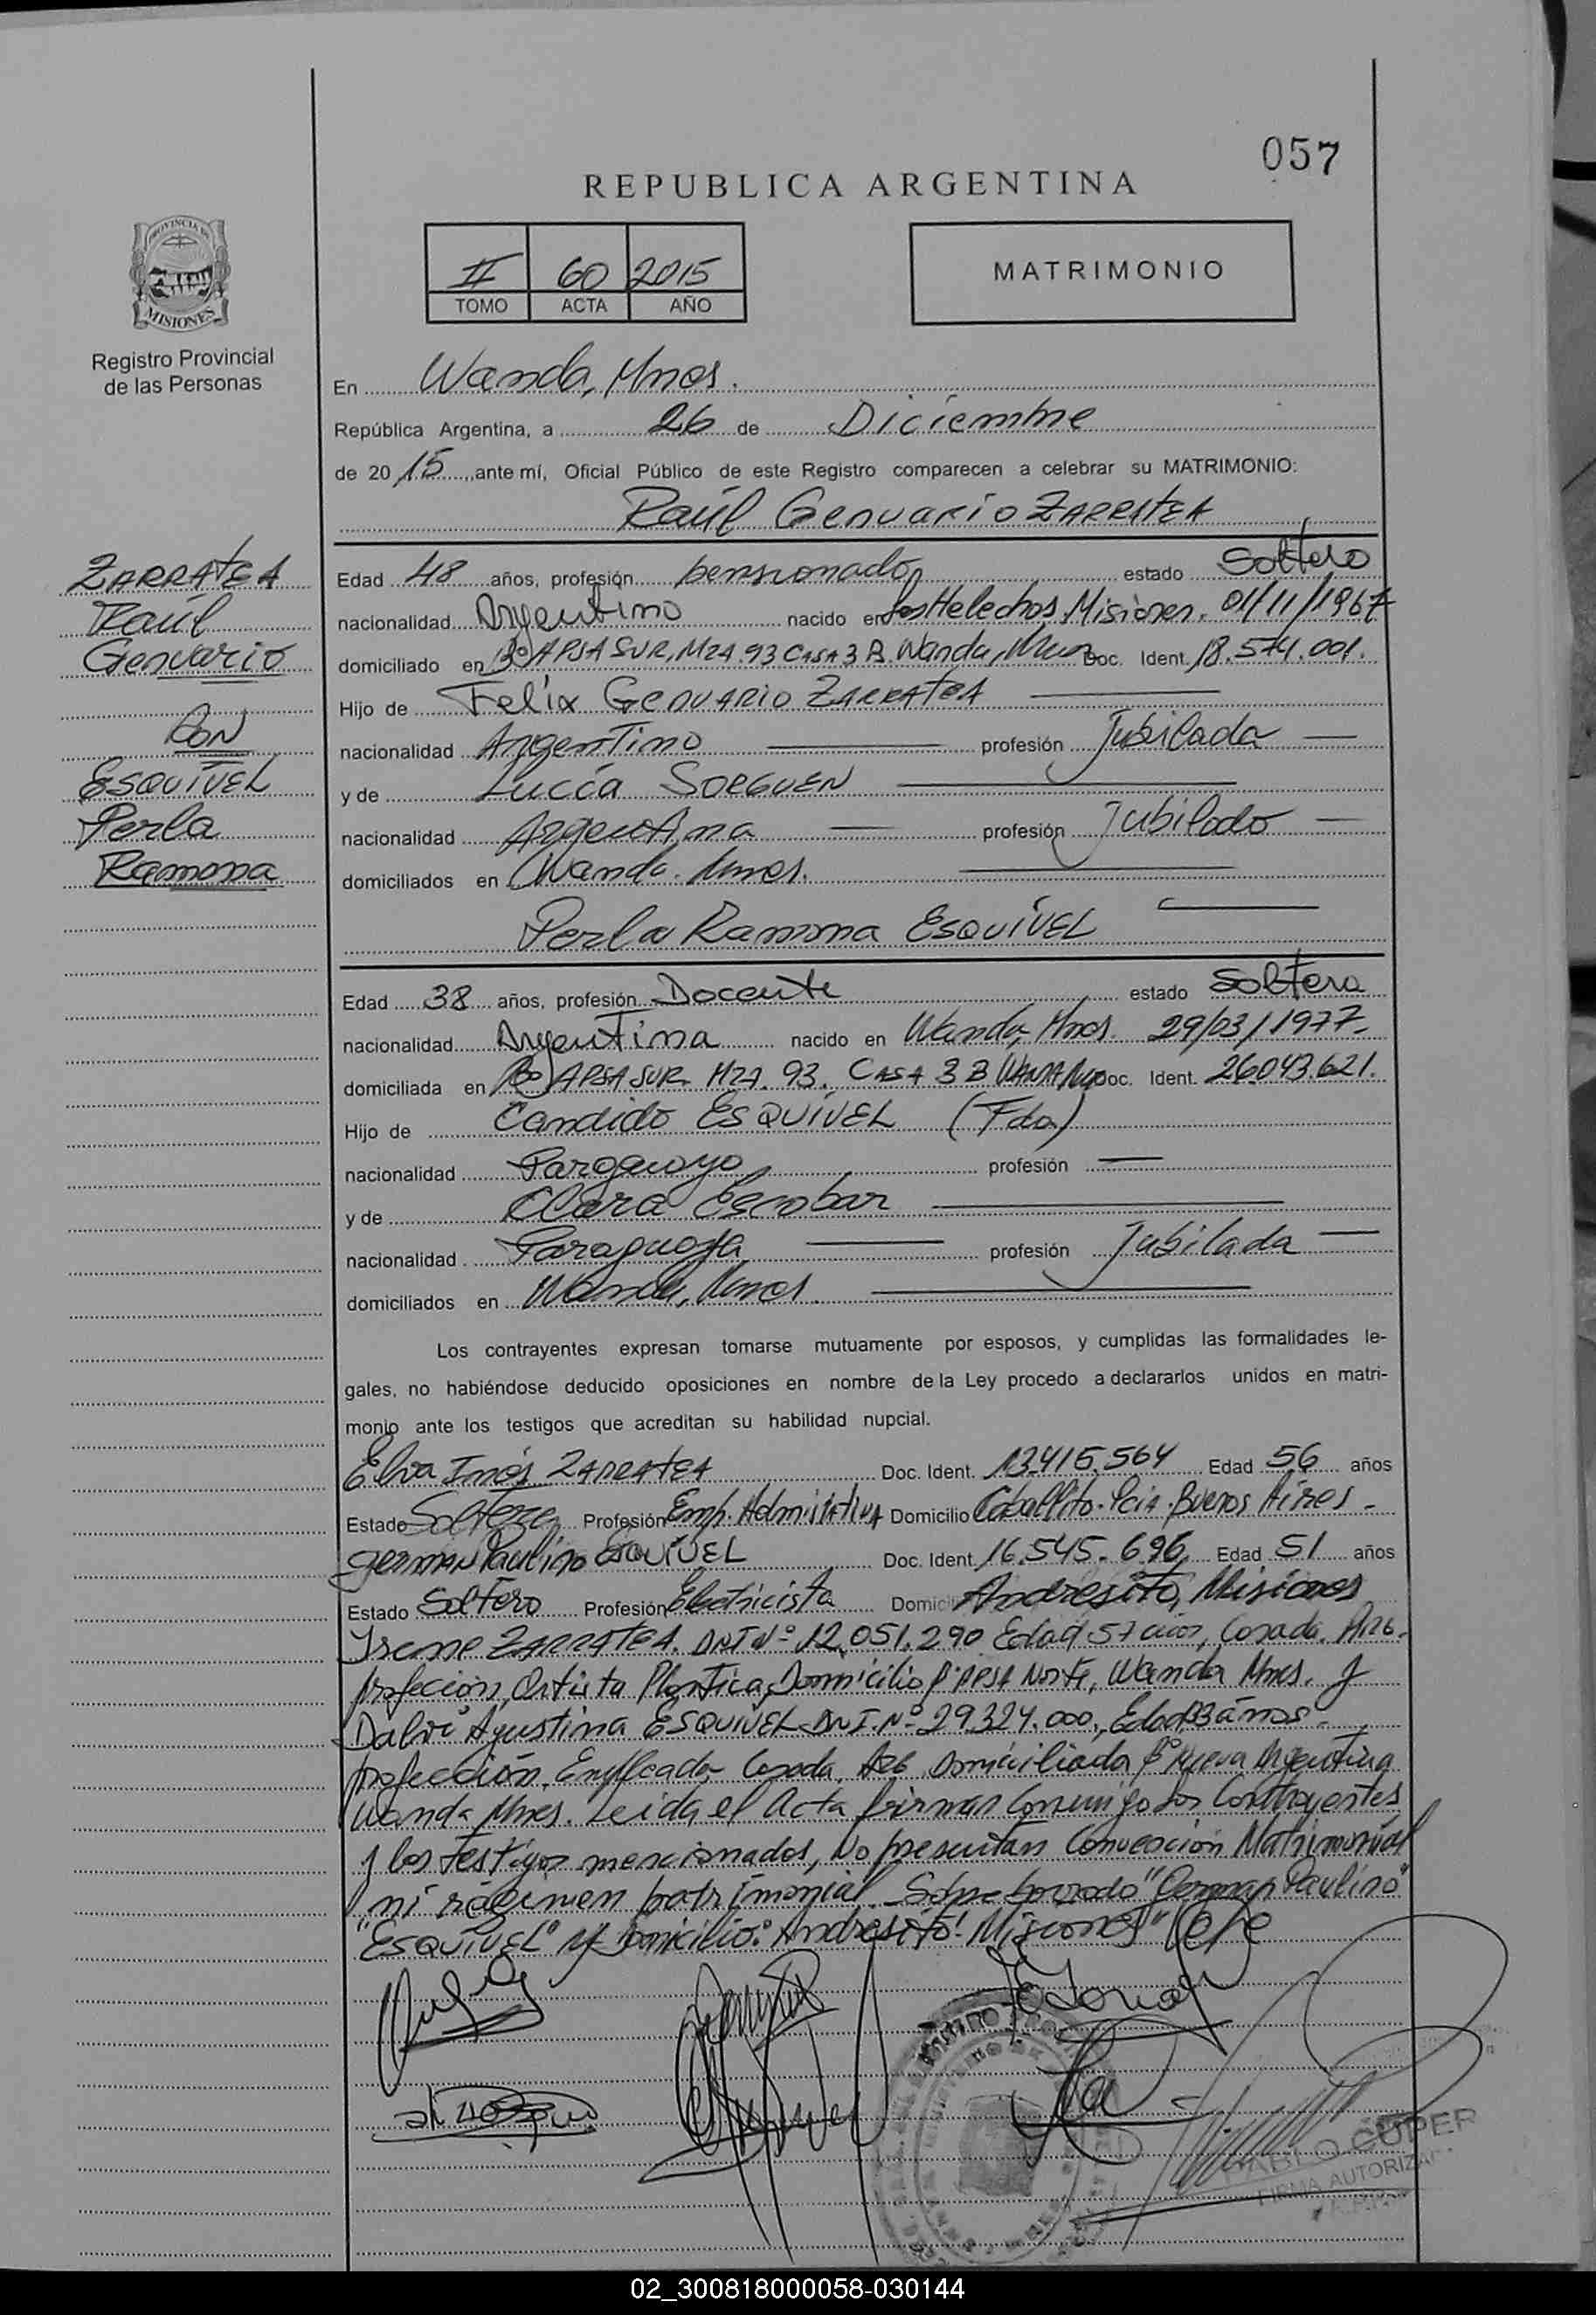 057
REPUBLICA ARGENTINA
II 60 2015
TOMO ACTA AÑO
MATRIMONIO
PROVINCIA DE
MISIONES
Registro Provincial
de las Personas
En Wanda, Mnes.
República Argentina, a 26 de Diciembre
de 2015, ante mí, Oficial Público de este Registro comparecen a celebrar su MATRIMONIO:
Raúl Genuario ZARRATEA
ZARRATEA
Raúl
Genuario
CON
ESQUIVEL
Perla
Ramona
Edad 48 años, profesión pensionado estado Soltero
nacionalidad Argentino nacido en Los Helechos, Misiones. 01/11/1967
domiciliado en Bº APSA SUR, MZA 93 CASA 3 B. Wanda, Doc. Ident. 18.574.001.
Hijo de Felix Genuario ZARRATEA
nacionalidad Argentino profesión Jubilada
y de Lucía SOEGUEN
nacionalidad Argentina profesión Jubilado
domiciliados en Wanda. Mnes.
Perla Ramona ESQUIVEL
Edad 38 años, profesión Docente estado Soltera
nacionalidad Argentina nacido en Wanda, Mnes. 29/03/1977.
domiciliada en Bº APSA SUR MZA. 93. CASA 3 B WANDA Doc. Ident. 26.043.621.
Hijo de Candido ESQUIVEL (Fdo)
nacionalidad Paraguayo profesión
y de Clara Escobar
nacionalidad Paraguaya profesión Jubilada
domiciliados en Wanda, Mnes.
Los contrayentes expresan tomarse mutuamente por esposos, y cumplidas las formalidades le-
gales, no habiéndose deducido oposiciones en nombre de la Ley procedo a declararlos unidos en matri-
monio ante los testigos que acreditan su habilidad nupcial.
Elva Inés ZARRATEA Doc. Ident. 13.415.564 Edad 56 años
Estado Soltera Profesión Emp. Domicilio Caballito. Pcia. Buenos Aires -
German Paulino ESQUIVEL Doc. Ident. 16.545.696, Edad 51 años
Estado Soltero Profesión Electricista Domici Andresito, Misiones
Irene ZARRATEA. DNI Nº 12.051.290 Edad 57 años, Casada. ARG.
profeción, Artista Plastica, Domicilio Bº APSA Norte, Wanda Mnes. y
Agustina ESQUIVEL DNI. Nº 29.324.000, Edad 33 años
profección, Empleada Casada, ARG Domiciliada Bº Nueva Argentina
Wanda Mnes. Leida el Acta firman Conmigo Los Contrayentes
y los testigos mencionados, No presentan Convención Matrimonial
ni régimen patrimonial. Sobre borrado "German Paulino"
"ESQUIVEL" y Domicilio: Andresito! Misiones" Vale
PABLO CUPER
FIRMA AUTORIZA
02_300818000058-030144